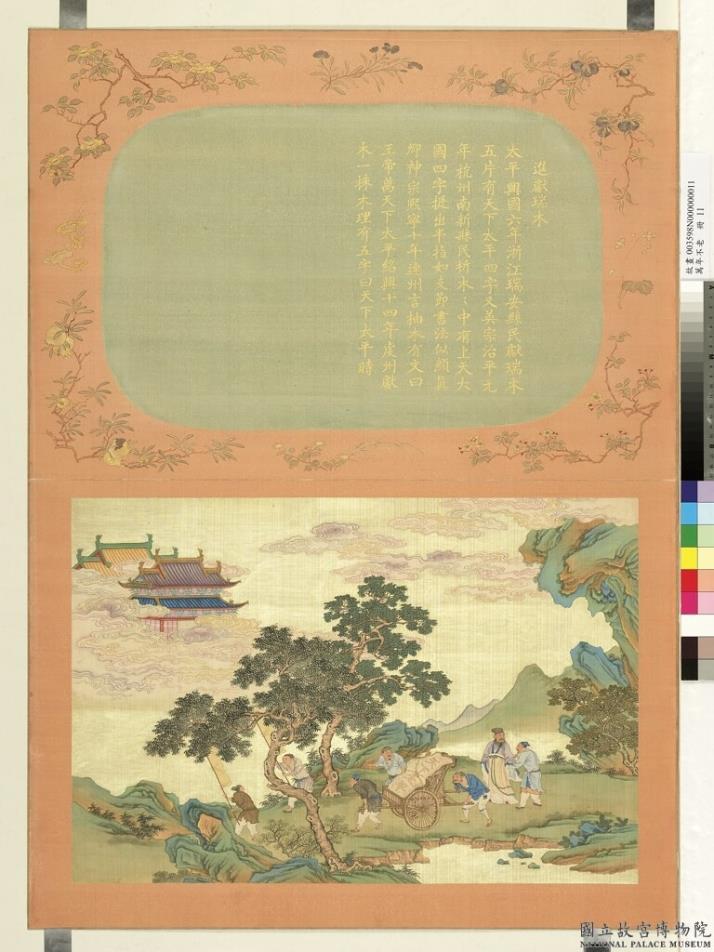 進獻瑞木
太平興國六年浙江瑞安縣民獻瑞木
五片有天下太平四字又英宗治平元
年杭州南新縣民析木〻中有上天大
國四字挺出半指如支節書法似顏真
卿神宗熙寧十年連州言柚木有文曰
王帝萬天下太平紹興十四年虔州獻
木一株木理有五字曰天下太平時
故畫 003598N000000011
萬年不老 冊 11
國立故宮博物院
NATIONAL PALACE MUSEUM